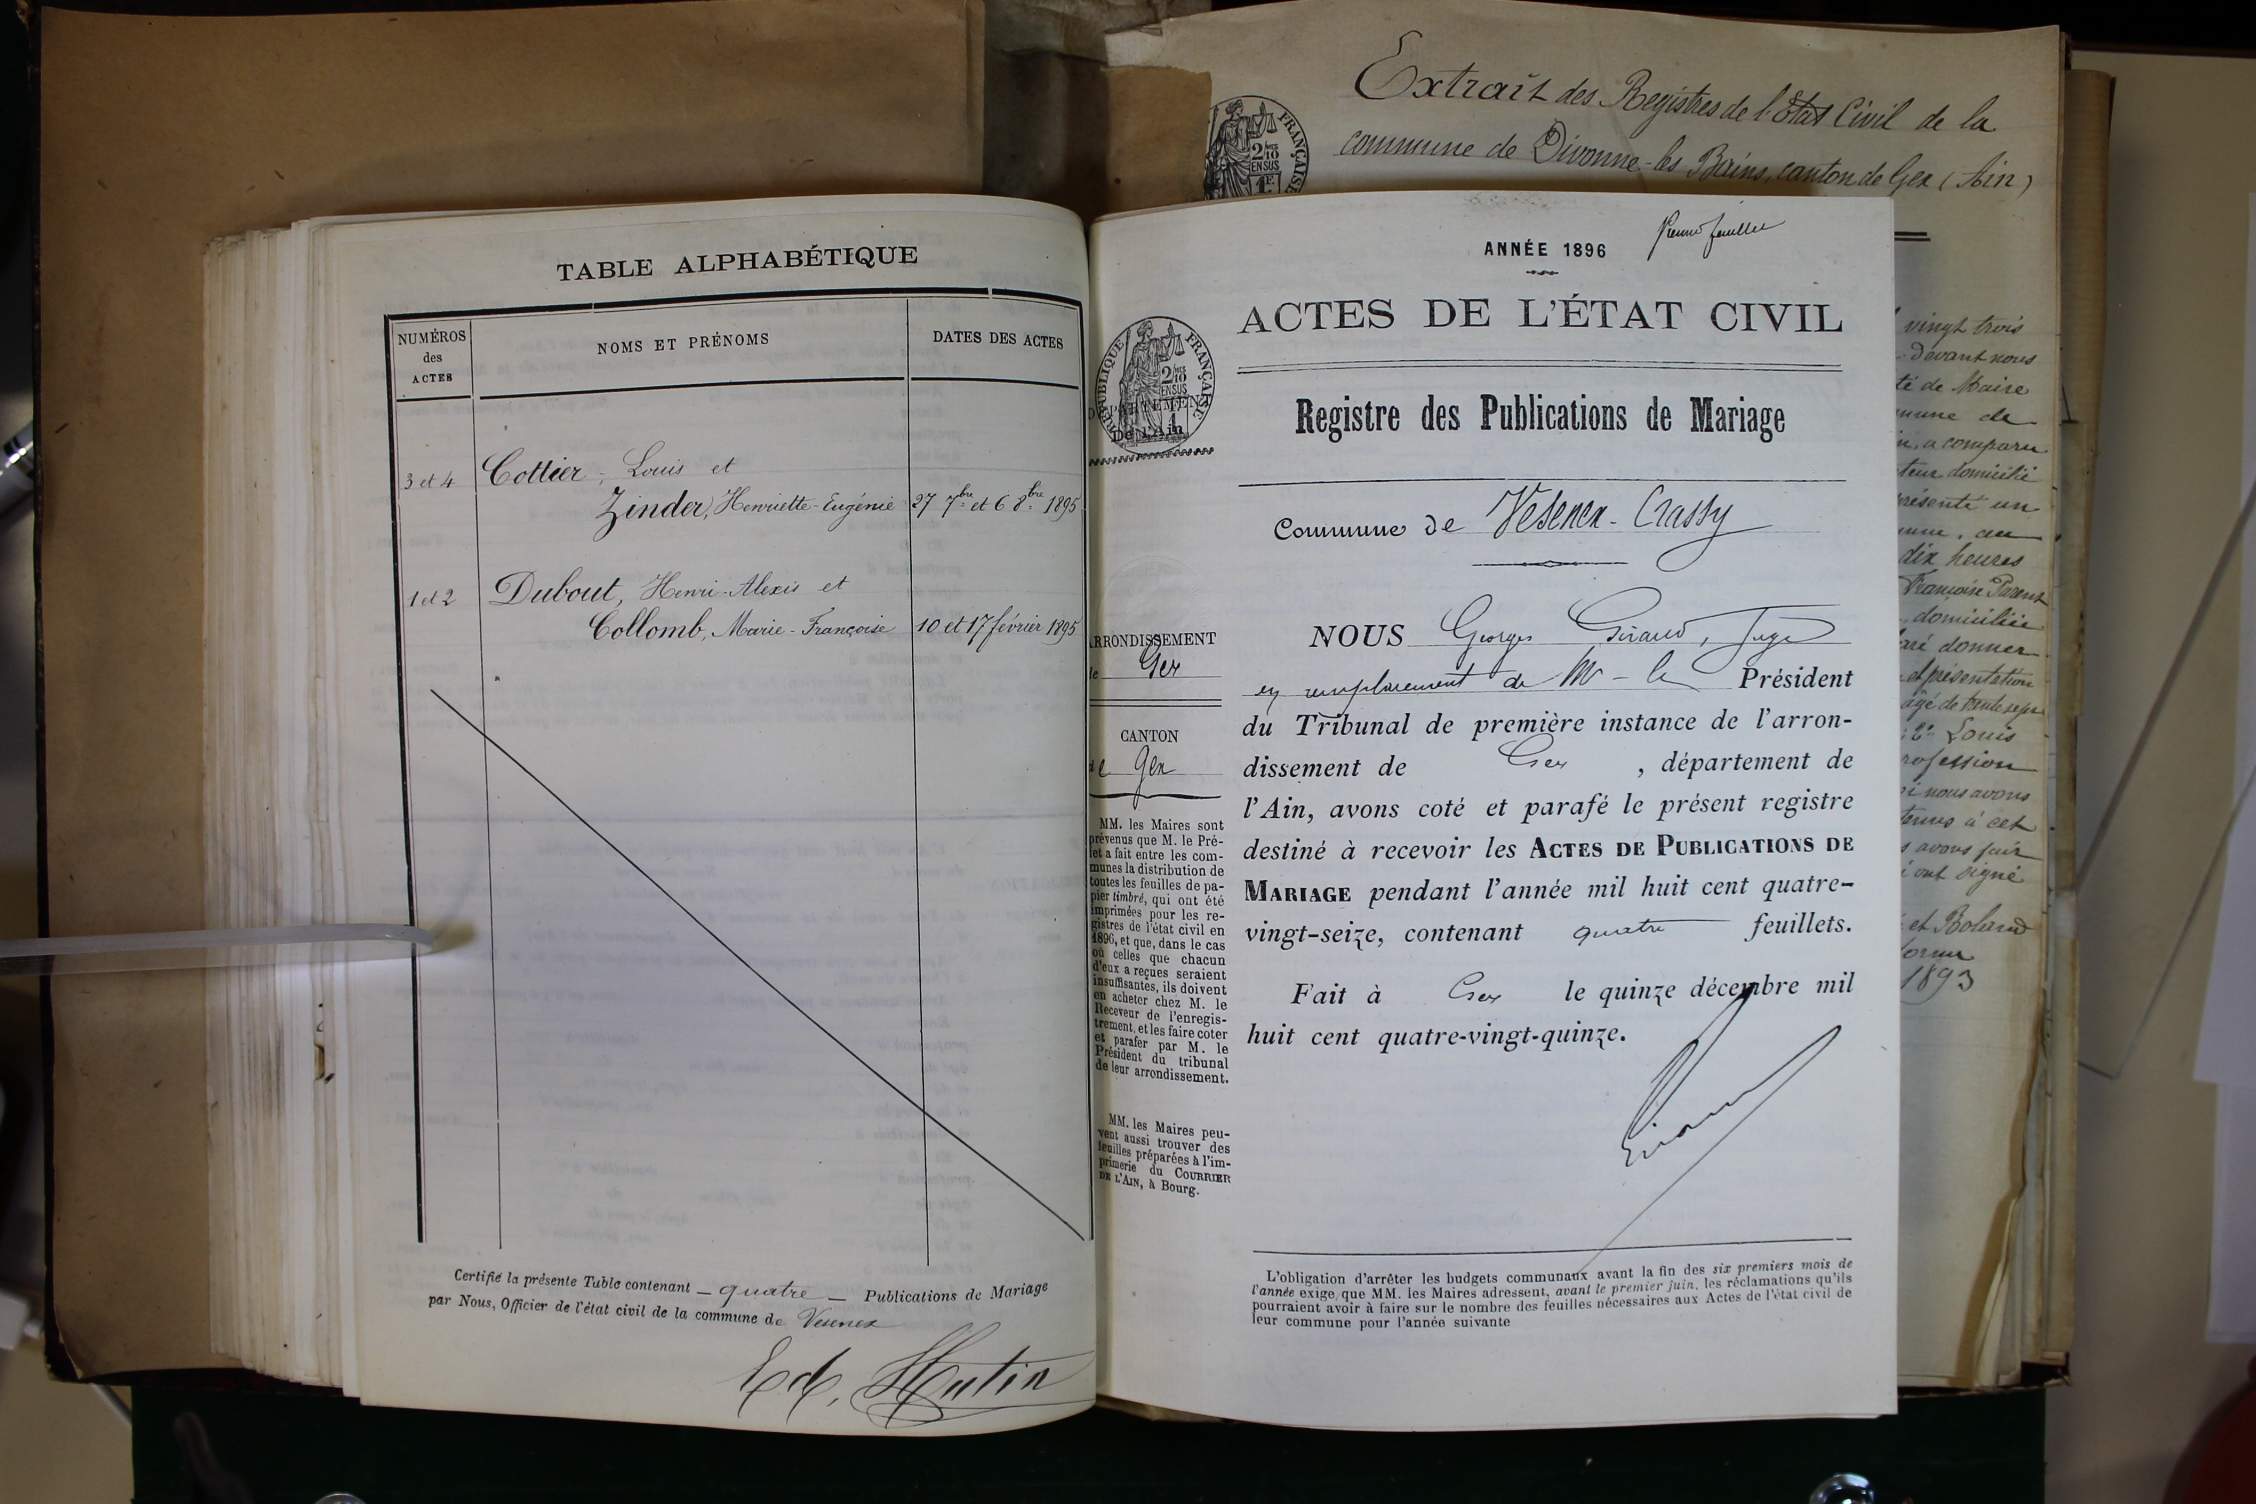 TABLE ALPHABÉTIQUE
NUMÉROS
des
ACTES
NOMS ET PRÉNOMS
DATES DES ACTES
3 et 4 Cottier, Louis et
Zinder, Henriette-Eugénie 27 7bre et 6 8bre 1895
1 et 2 Dubout, Henri-Alexis et
Collomb, Marie-Françoise 10 et 17 février 1895
Certifié la présente Table contenant quatre Publications de Mariage
par Nous, Officier de l'état civil de la commune de Vesenex
Ed. Hutin
Extrait des Registres de l'Etat Civil de la
commune de Divonne-les-Bains, canton de Gex (Ain)
FRANÇAISE
2/10
EN SUS
1E
ANNÉE 1896
feuillet
ACTES DE L'ÉTAT CIVIL
Registre des Publications de Mariage
Commune de Vesenex-Crassy
NOUS Georges Giraud, Juge
en remplacement de Mr le Président
du Tribunal de première instance de l'arron-
dissement de Gex, département de
l'Ain, avons coté et parafé le présent registre
destiné à recevoir les ACTES DE PUBLICATIONS DE
MARIAGE pendant l'année mil huit cent quatre-
vingt-seize, contenant quatre feuillets.
Fait à Gex le quinze décembre mil
huit cent quatre-vingt-quinze.
L'obligation d'arrêter les budgets communaux avant la fin des six premiers mois de
l'année exige que MM. les Maires adressent, avant le premier juin, les réclamations qu'ils
pourraient avoir à faire sur le nombre des feuilles nécessaires aux Actes de l'état civil de
leur commune pour l'année suivante
RÉPUBLIQUE FRANÇAISE
2/10
EN SUS
DÉPARTEMENT
De l'Ain
ARRONDISSEMENT
de Gex
CANTON
de Gex
MM. les Maires sont
prévenus que M. le Pré-
fet a fait entre les com-
munes la distribution de
toutes les feuilles de pa-
pier timbré, qui ont été
imprimées pour les re-
gistres de l'état civil en
1896, et que, dans le cas
où celles que chacun
d'eux a reçues seraient
insuffisantes, ils doivent
en acheter chez M. le
Receveur de l'enregis-
trement, et les faire coter
et parafer par M. le
Président du tribunal
de leur arrondissement.
MM. les Maires peu-
vent aussi trouver des
feuilles préparées à l'im-
primerie du COURRIER
DE L'AIN, à Bourg.
vingt trois
devant nous
té de Maire
mune de
a comparu
teur domicilié
résenté un
dix heures
Françoise Parent
domiciliée
aré donner
et présentation
âgé de trente sept
Louis
rofession
i nous avons
tenus à cet
s avons fait
i ont signé
et Roland
1893